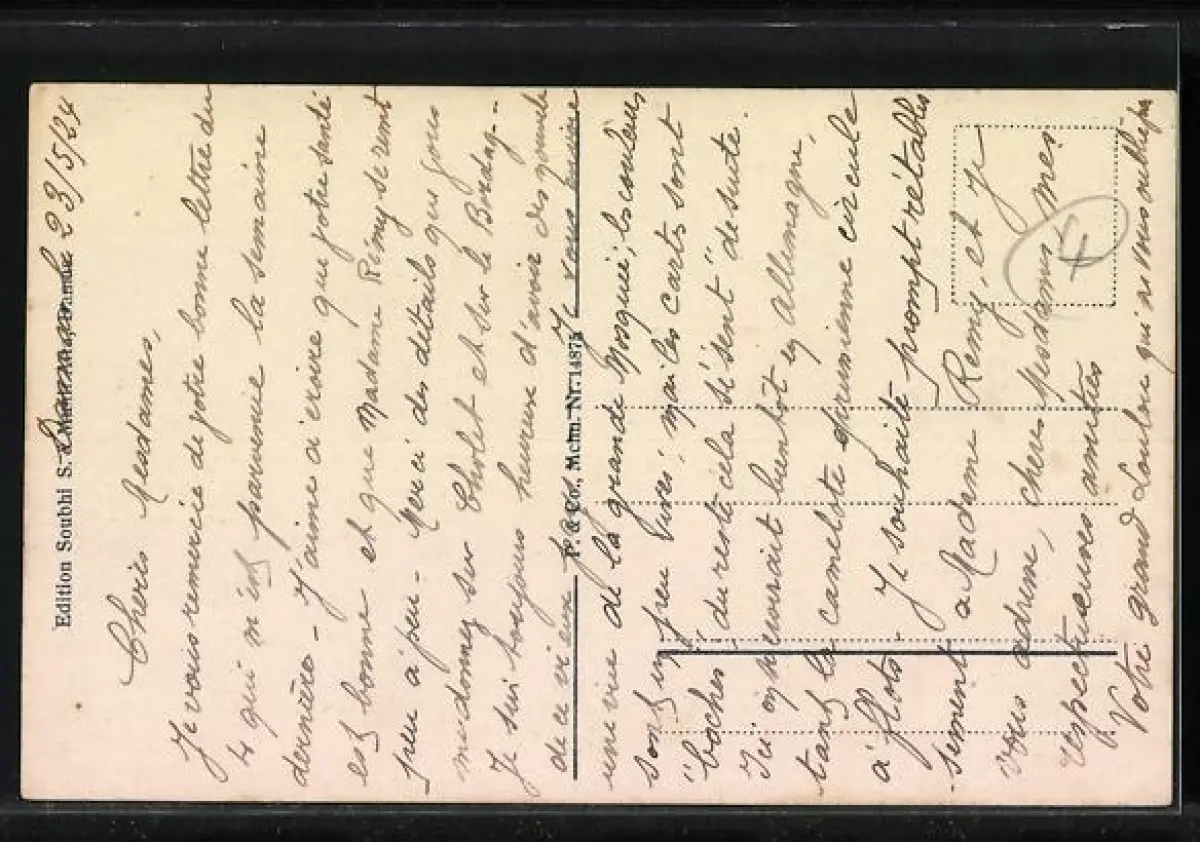 Edition Soubhi S.
Damas 23/5/24
Chères Mesdames,
Je vous remercie de votre bonne lettre du
4 qui m'est parvenue la semaine
dernière - J'aime à croire que votre santé
est bonne et que Madame Rémy se remet
peu à peu - Merci des détails que vous
me donnez sur Cholet et sur le Bordag --
Je suis toujours heureux d'avoir des nouvelles
de ce vieux Je vous envoie
P. & Co., Mchn. Nr. 14875
une vue de la grande Mosquée, les couleurs
sont un peu vives, mais les cartes sont
"boches" du reste cela se sent "de suite.
Ici on pourrait bientôt en Allemagne,
tant la camelote germanienne circule
à flots - Je souhaite prompt rétablis
-sement à Madame Remy, et je
vous adresse, chères Mesdames, mes
respectueuses amitiés
Votre grand Loulou qui ne vous oublie pas